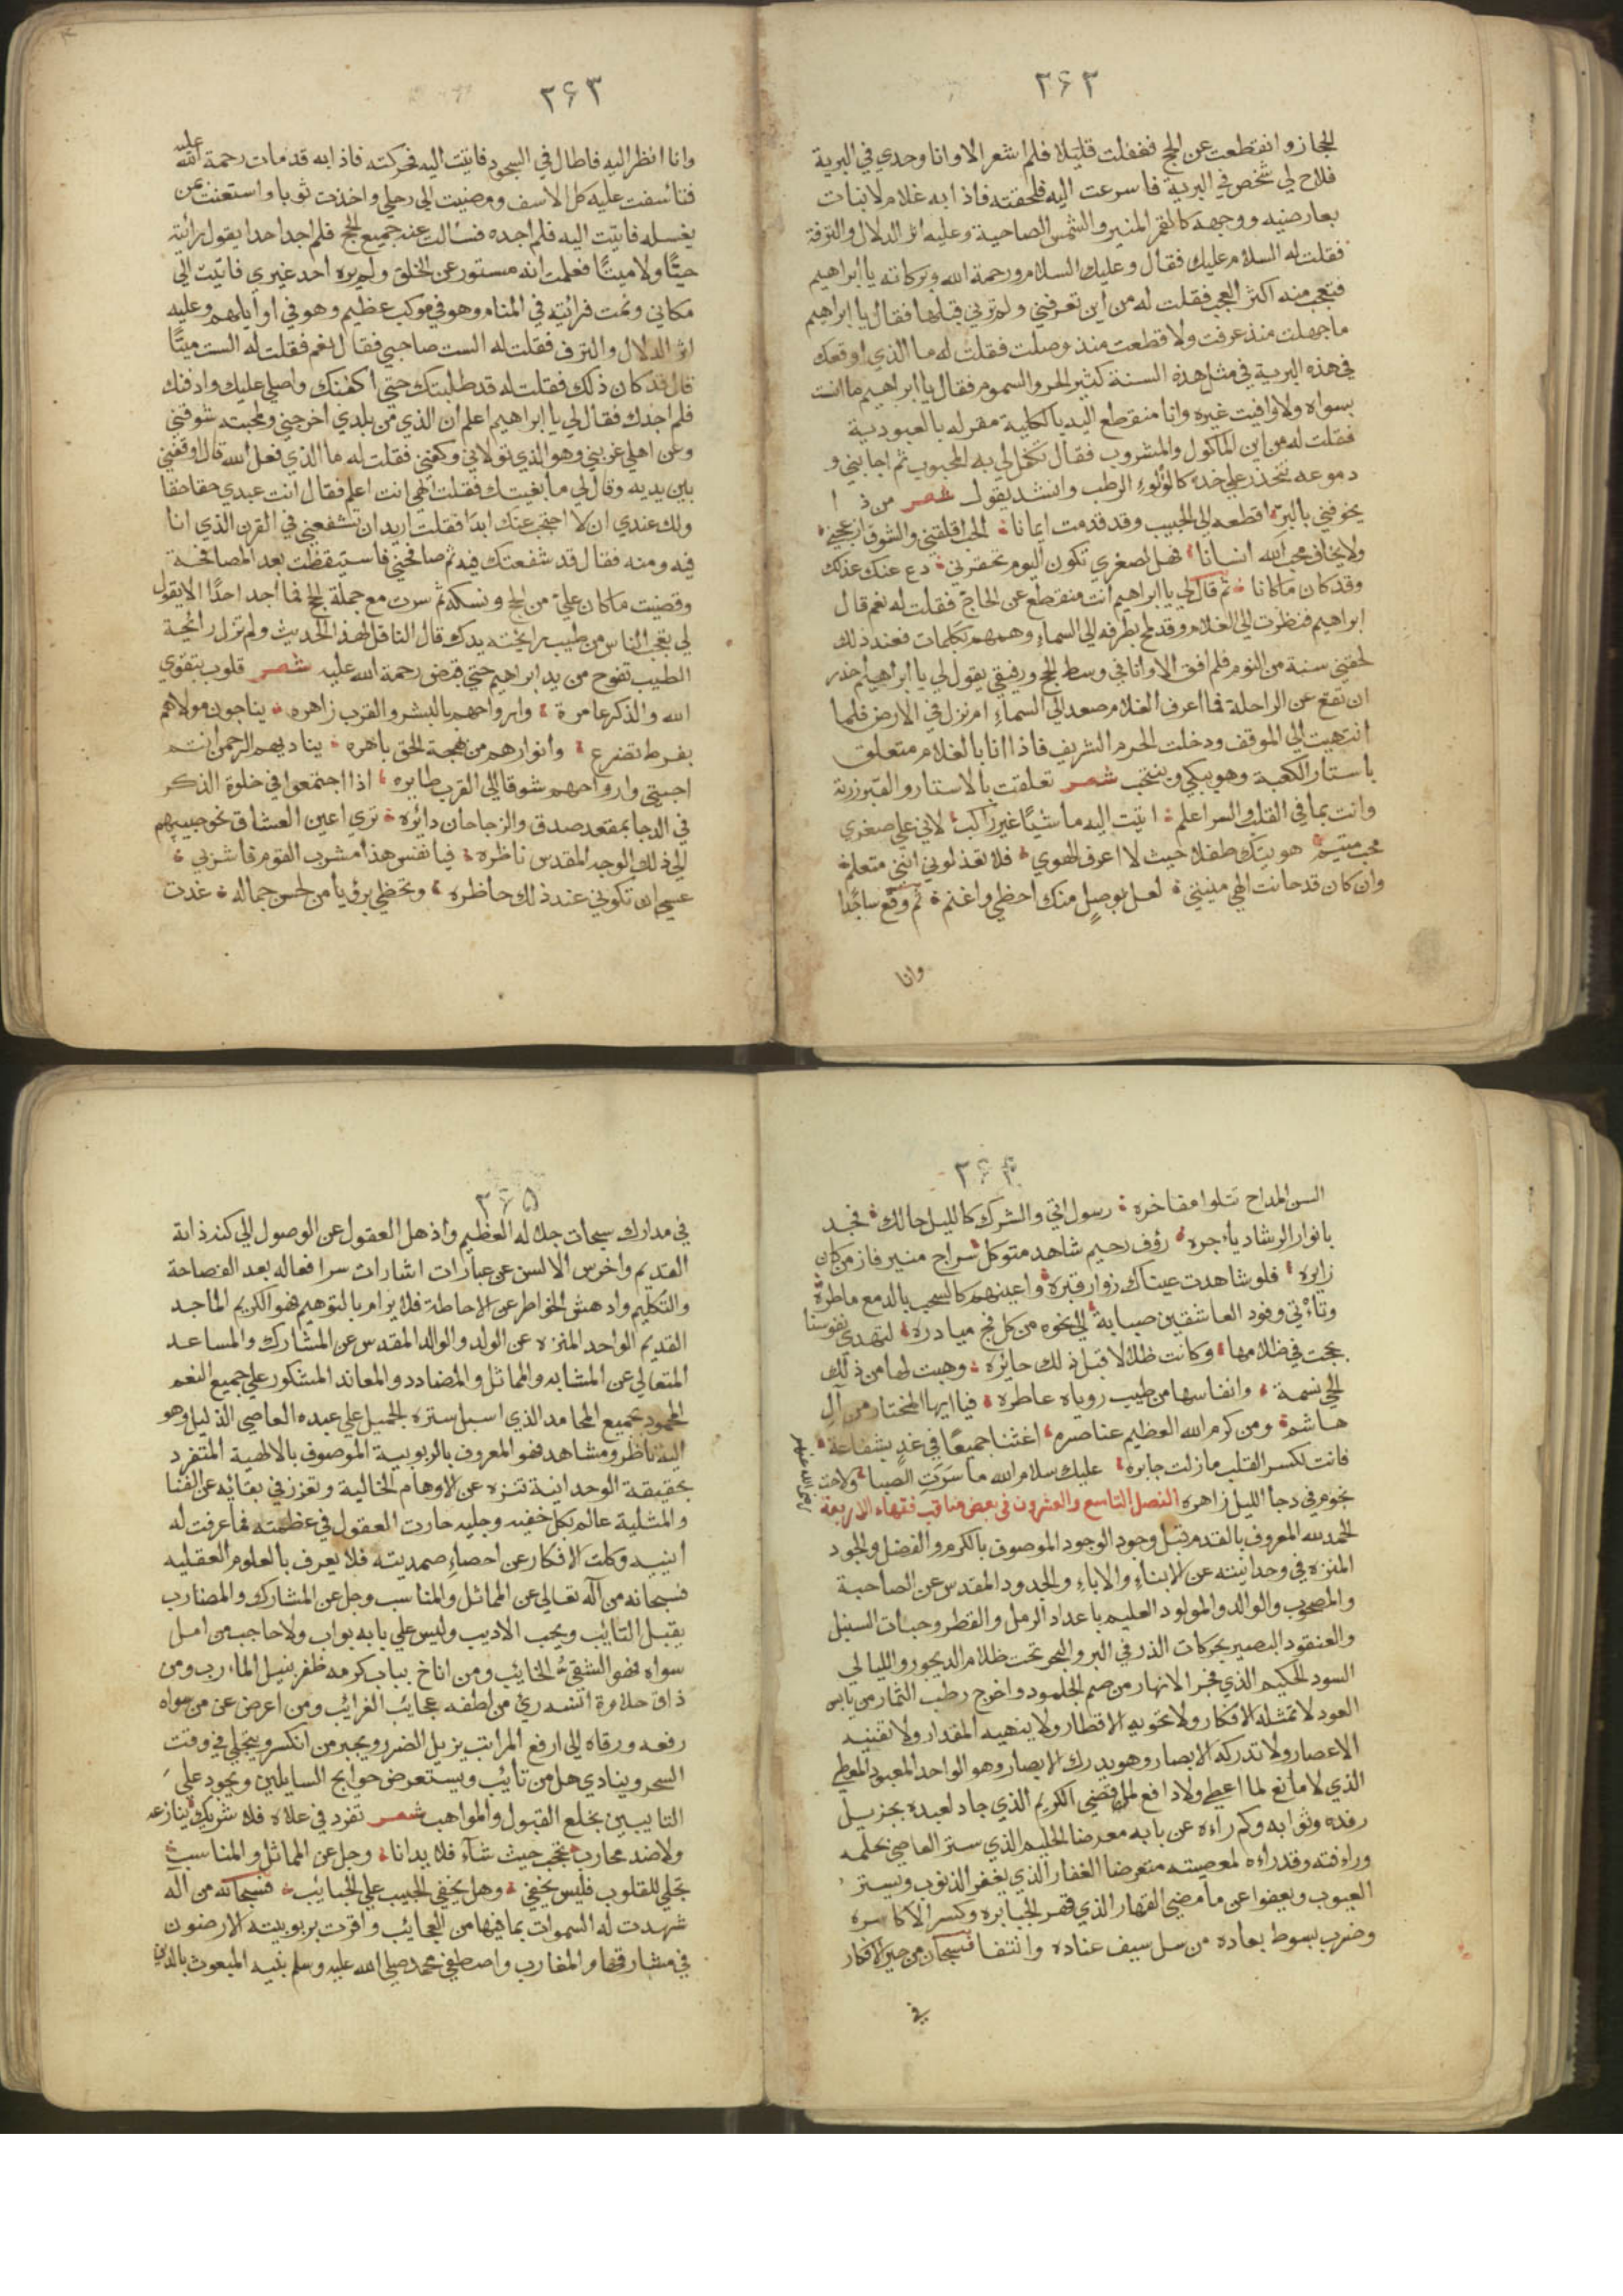 ٢٦٢
الحجاز وانقطعت عن الحج فغفلت قليلا فلم اشعر الا وانا وحدي في البرية
فلاح لي شخص في البرية فاسرعت اليه فلحقته فاذا به غلام لا نبات
بعارضيه ووجهه كالقمر المنير والشمس الضاحية وعليه اثر الدلال والترفة
فقلت له السلام عليك فقال وعليك السلام ورحمة الله وبركاته يا ابراهيم
فتعجبت منه اكثر العجب فقلت له من اين تعرفني ولم ترني قبلها فقال يا ابراهيم
ما جهلت منذ عرفت ولا قطعت منذ وصلت فقلت له ما الذي اوقعك
في هذه البرية في مثل هذه السنة كثير الحر والسموم فقال يا ابراهيم ما انست
بسواه ولا وافيت غيره وانا منقطع اليه بالكلية مقر له بالعبودية
فقلت له من اين الماكول والمشروب فقال تكفل لي به المحبوب ثم اجابني و
دموعه تتحدر على خده كاللؤلؤ الرطب وانشد يقول شعر من ذا
يخوفني بالبر اقطعه الى الحبيب وقد قدمت ايمانا الحب اقلقني والشوق ازعجني
ولا يخاف محب الله انسانا فهل لصغري تكون اليوم تحقرني دع عنك عذلك
وقد كان ما كانا ثم قال لي يا ابراهيم انت منقطع عن الحاج فقلت له نعم قال
ابراهيم فنظرت الى الغلام وقد لمح بطرفه الى السماء وهمهم بكلمات فعند ذلك
لحقني سنة من النوم فلم افق الا وانا في وسط الحج ورفيقي يقول لي يا ابراهيم احذر
ان تقع عن الراحلة فما اعرف الغلام صعد الى السماء ام نزل في الارض فلما
انتهيت الى الموقف ودخلت الحرم الشريف فاذا انا بالغلام متعلق
باستار الكعبة وهو يبكي وينتحب شعر تعلقت بالاستار والقبر زرته
وانت بما في القلب والسر اعلم اتيت اليه ماشيا غير راكب لاني على صغري
محب متيم هويتك طفلا حيث لا اعرف الهوى فلا تعذلوني انني متعلم
وان كان قد حانت الهي منيتي لعل بوصل منك احظى واغنم ثم وقع ساجدا
وانا
٢٦٣
وانا انظر اليه فاطال في السجود فاتيت اليه فحركته فاذا به قد مات رحمة الله عليه
فتاسفت عليه كل الاسف ومضيت الى رحلي واخذت ثوبا واستعنت من
يغسله فاتيت اليه فلم اجده فسالت عنه جميع الحج فلم اجد احدا يقول رائيته
حيًّا ولا ميتًا فعلمت انه مستور عن الخلق ولم يره احد غيري فاتيت الى
مكاني ونمت فرائيته في المنام وهو في موكب عظيم وهو في اوايلهم وعليه
اثر الدلال والترف فقلت له الست صاحبي فقال نعم فقلت له الست ميتًا
قال قد كان ذلك فقلت له قد طلبتك حتى اكفنك واصلي عليك وادفنك
فلم اجدك فقال لي يا ابراهيم اعلم ان الذي من بلدي اخرجني ومحبته شوقني
وعن اهلي غربني وهو الذي تولاني وكفني فقلت له ما الذي فعل الله قال اوقفني
بين يديه وقال لي ما بغيتك فقلت الهي انت اعلم فقال انت عبدي حقا حقا
ولك عندي ان لا احتجب عنك ابدًا فقلت اريد ان تشفعني في القرن الذي انا
فيه ومنه فقال قد شفعتك فيه ثم صافحني فاستيقظت بعد المصافحة
وقضيت ما كان علي من الحج ونسكه ثم سرت مع جملة الحج فما اجد احدًا الا يقول
لي تعجب الناس من طيب رايحته يدك قال الناقل لهذا الحديث ولم تزل رائحة
الطيب تفوح من يد ابراهيم حتى قبض رحمة الله عليه شعر قلوب بتقوى
الله والذكر عامرة وارواحهم بالبشر والقرب زاهره يناجون مولاهم
بفرط تضرع وانوارهم من بهجة الحق باهره يناديهم الرحمن انتم
احبتي وارواحهم شوقا الى القرب طايره اذا اجتمعوا في خلوة الذكر
في الدجا بمقعد صدق والزجاجات دائره ترى اعين العشاق نحو حبيبهم
الى ذلك الوجه المقدس ناظره فيا نفس هذا مشرب القوم فاشربي
عسى ان تكوني عند ذلك حاظره وتحظي برؤيا من لحسن جماله غدت
٢٦٤
السن المداح تتلوا مفاخره رسول اتى والشرك كالليل حالك فجد
بانوار الرشاد دياجره رؤف رحيم شاهد متوكل سراج منير فاز من كان
زايره فلو شاهدت عيناك زوار قبره واعينهم كالسحب بالدمع ماطرة
وتأتي وفود العاشقين صبابة الى نحوه من كل فج مبادره لتهدي نفوسنا
عجت في ظلامها وكانت ظلالا قبل ذلك حايره وهبت لها من ذلك
الحي نسمة وانفاسها من طيب روياه عاطره فيا ايها المختار من آل
هاشم ومن كرم الله العظيم عناصره اغثنا جميعًا في غدٍ بشفاعة
فانت لكسر القلب ما زلت جابره عليك سلام الله ما سرت الصبا ولاحت
نجوم في دجا الليل زاهره الفصل التاسع والعشرون في بعض مناقب فقهاء الاربعة
رضي الله عنهم
الحمد لله المعروف بالقدم قبل وجود الوجود الموصوف بالكرم والفضل والجود
المنزه في وحدانيته عن الابناء والاباء والجدود المقدس عن الصاحبة
والمصحوب والوالد والمولود العليم باعداد الرمل والقطر وحبات السنبل
والعنقود البصير بحركات الذر في البر والبحر تحت ظلام الديجور والليالي
السود الحكيم الذي فجر الانهار من صم الجلمود واخرج رطب الثمار من يابس
العود لا تمثله الافكار ولا تحويه الاقطار ولا ينهيه المقدار ولا تفنيه
الاعصار ولا تدركه الابصار وهو يدرك الابصار وهو الواحد المعبود المعطي
الذي لا مانع لما اعطى ولا دافع لما قضى الكريم الذي جاد لعبده بجزيل
رفده وثوابه وكم راءه عن بابه معرضا الحليم الذي ستر العاصي بحلمه
وراءفته وقد راءه لمعصيته متعرضا الغفار الذي يغفر الذنوب ويستر
العيوب ويعفوا عن ما مضى القهار الذي قهر الجبابره وكسر الاكاسره
وضرب بسوط بعاده من سل سيف عناده وانتضا فسبحان من حير الافكار
في
٢٦٥
في مدارك سبحات جلاله العظيم واذهل العقول عن الوصول الى كنه ذاته
القديم واخرس الالسن عن عبارات اشارات سر افعاله بعد الفصاحة
والتكليم وادهش الخواطر عن الاحاطة فلا يرام بالتوهيم فهو الكريم الماجد
القديم الواحد المنزه عن الولد والوالد المقدس عن المشارك والمساعد
المتعالي عن المشابه والمماثل والمضادد والمعاند المشكور على جميع النعم
المحمود بجميع المحامد الذي اسبل ستره الجميل على عبده العاصي الذليل وهو
اليه ناظر ومشاهد فهو المعروف بالربوبية الموصوف بالالهية المتفرد
بحقيقة الوحدانية تنزه عن الاوهام الخالية وتعزز في بقائه عن الفنا
والمثلية عالم بكل خفيه وجليه حارت العقول في عظمته فما عرفت له
اينيه وكلت الافكار عن احصاء صمديته فلا يعرف بالعلوم العقليه
فسبحانه من آله تعالى عن المماثل والمناسب وجل عن المشارك والمضارب
يقبل التايب ويحب الاديب وليس على بابه بواب ولا حاجب من امل
سواه فهو الشقي الخايب ومن اناخ بباب كرمه ظفر بنيل المارب ومن
ذاق حلاوة انسه رئ من لطفه عجايب الغرائب ومن اعرض عن من سواه
رفعه ورقاه الى ارفع المراتب يزيل الضرر ويجبر من انكسر ويتجلى في وقت
السحر وينادي هل من تايب ويستعرض حوايج السايلين ويجود على
التايبين بخلع القبول والمواهب شعر تفرد في علاه فلا شريك ينازعه
ولا ضد محارب تحجب حيث شآء فلا يدانا وجل عن المماثل والمناسب
تجلى للقلوب فليس يخفى وهل يخفى الحبيب على الحبايب فسبحانه من اله
شهدت له السموات بما فيها من العجايب واقرت بربوبيته الارضون
في مشارقها والمغارب واصطفى محمد صلى الله عليه وسلم نبيه المبعوث بالدين